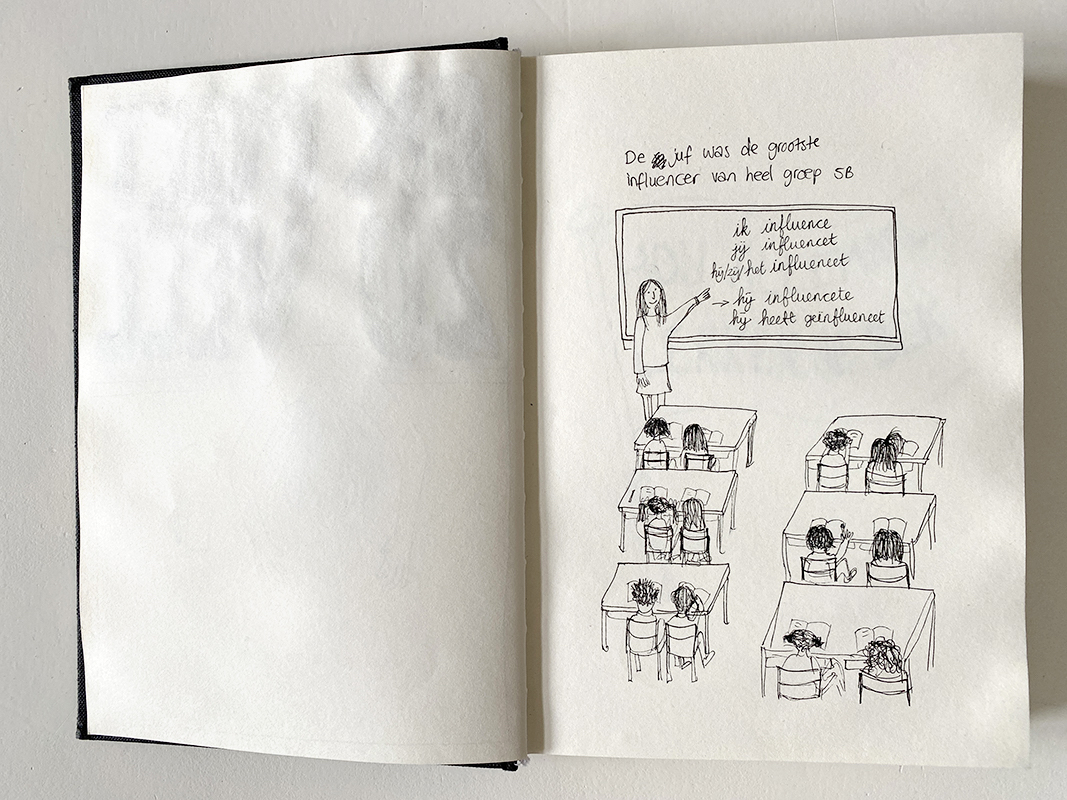 De juf was de grootste
influencer van heel groep 5B
ik influence
jij influencet
hij/zij/het influencet
→ hij influencete
hij heeft geïnfluencet